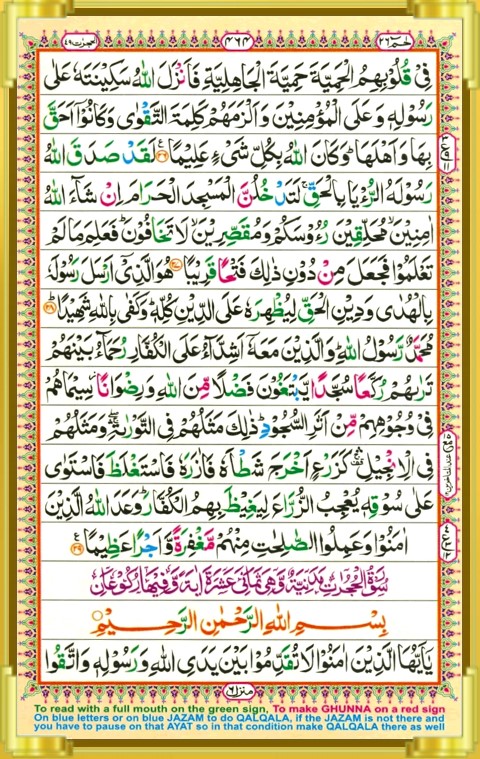 حٰمٓ ٢٦
٤٦٤
الحجرٰت ٤٩
فِیْ قُلُوْبِهِمُ الْحَمِیَّةَ حَمِیَّةَ الْجَاهِلِیَّةِ فَاَنْزَلَ اللّٰهُ سَكِیْنَتَهٗ عَلٰی
رَسُوْلِهٖ وَعَلَی الْمُؤْمِنِیْنَ وَاَلْزَمَهُمْ كَلِمَةَ التَّقْوٰی وَكَانُوْۤا اَحَقَّ
بِهَا وَاَهْلَهَا ؕ وَكَانَ اللّٰهُ بِكُلِّ شَیْءٍ عَلِیْمًا ﴿٢٦﴾ لَقَدْ صَدَقَ اللّٰهُ
رَسُوْلَهُ الرُّءْیَا بِالْحَقِّ ۚ لَتَدْخُلُنَّ الْمَسْجِدَ الْحَرَامَ اِنْ شَآءَ اللّٰهُ
اٰمِنِیْنَ ۙ مُحَلِّقِیْنَ رُءُوْسَكُمْ وَمُقَصِّرِیْنَ ۙ لَا تَخَافُوْنَ ؕ فَعَلِمَ مَا لَمْ
تَعْلَمُوْا فَجَعَلَ مِنْ دُوْنِ ذٰلِكَ فَتْحًا قَرِیْبًا ﴿٢٧﴾ هُوَ الَّذِیْۤ اَرْسَلَ رَسُوْلَهٗ
بِالْهُدٰی وَدِیْنِ الْحَقِّ لِیُظْهِرَهٗ عَلَی الدِّیْنِ كُلِّهٖ ؕ وَكَفٰی بِاللّٰهِ شَهِیْدًا ﴿٢٨﴾
مُحَمَّدٌ رَّسُوْلُ اللّٰهِ ؕ وَالَّذِیْنَ مَعَهٗۤ اَشِدَّآءُ عَلَی الْكُفَّارِ رُحَمَآءُ بَیْنَهُمْ
تَرٰىهُمْ رُكَّعًا سُجَّدًا یَّبْتَغُوْنَ فَضْلًا مِّنَ اللّٰهِ وَرِضْوَانًا ؗ سِیْمَاهُمْ
فِیْ وُجُوْهِهِمْ مِّنْ اَثَرِ السُّجُوْدِ ؕ ذٰلِكَ مَثَلُهُمْ فِی التَّوْرٰىةِ ۛۖۚ وَمَثَلُهُمْ
فِی الْاِنْجِیْلِ ۛ۫ۚ كَزَرْعٍ اَخْرَجَ شَطْـَٔهٗ فَاٰزَرَهٗ فَاسْتَغْلَظَ فَاسْتَوٰی
عَلٰی سُوْقِهٖ یُعْجِبُ الزُّرَّاعَ لِیَغِیْظَ بِهِمُ الْكُفَّارَ ؕ وَعَدَ اللّٰهُ الَّذِیْنَ
اٰمَنُوْا وَعَمِلُوا الصّٰلِحٰتِ مِنْهُمْ مَّغْفِرَةً وَّاَجْرًا عَظِیْمًا ﴿٢٩﴾
سُوْرَةُ الْحُجُرٰتِ مَدَنِیَّةٌ وَّهِیَ ثَمَانِیْ عَشْرَةَ اٰیَةً وَّفِیْهَا رُكُوْعَانِ
بِسْمِ اللّٰهِ الرَّحْمٰنِ الرَّحِیْمِ
یٰۤاَیُّهَا الَّذِیْنَ اٰمَنُوْا لَا تُقَدِّمُوْا بَیْنَ یَدَیِ اللّٰهِ وَرَسُوْلِهٖ وَاتَّقُوا
منزل ٦
To read with a full mouth on the green sign, To make GHUNNA on a red sign
On blue letters or on blue JAZAM to do QALQALA, if the JAZAM is not there and
you have to pause on that AYAT so in that condition make QALQALA there as well